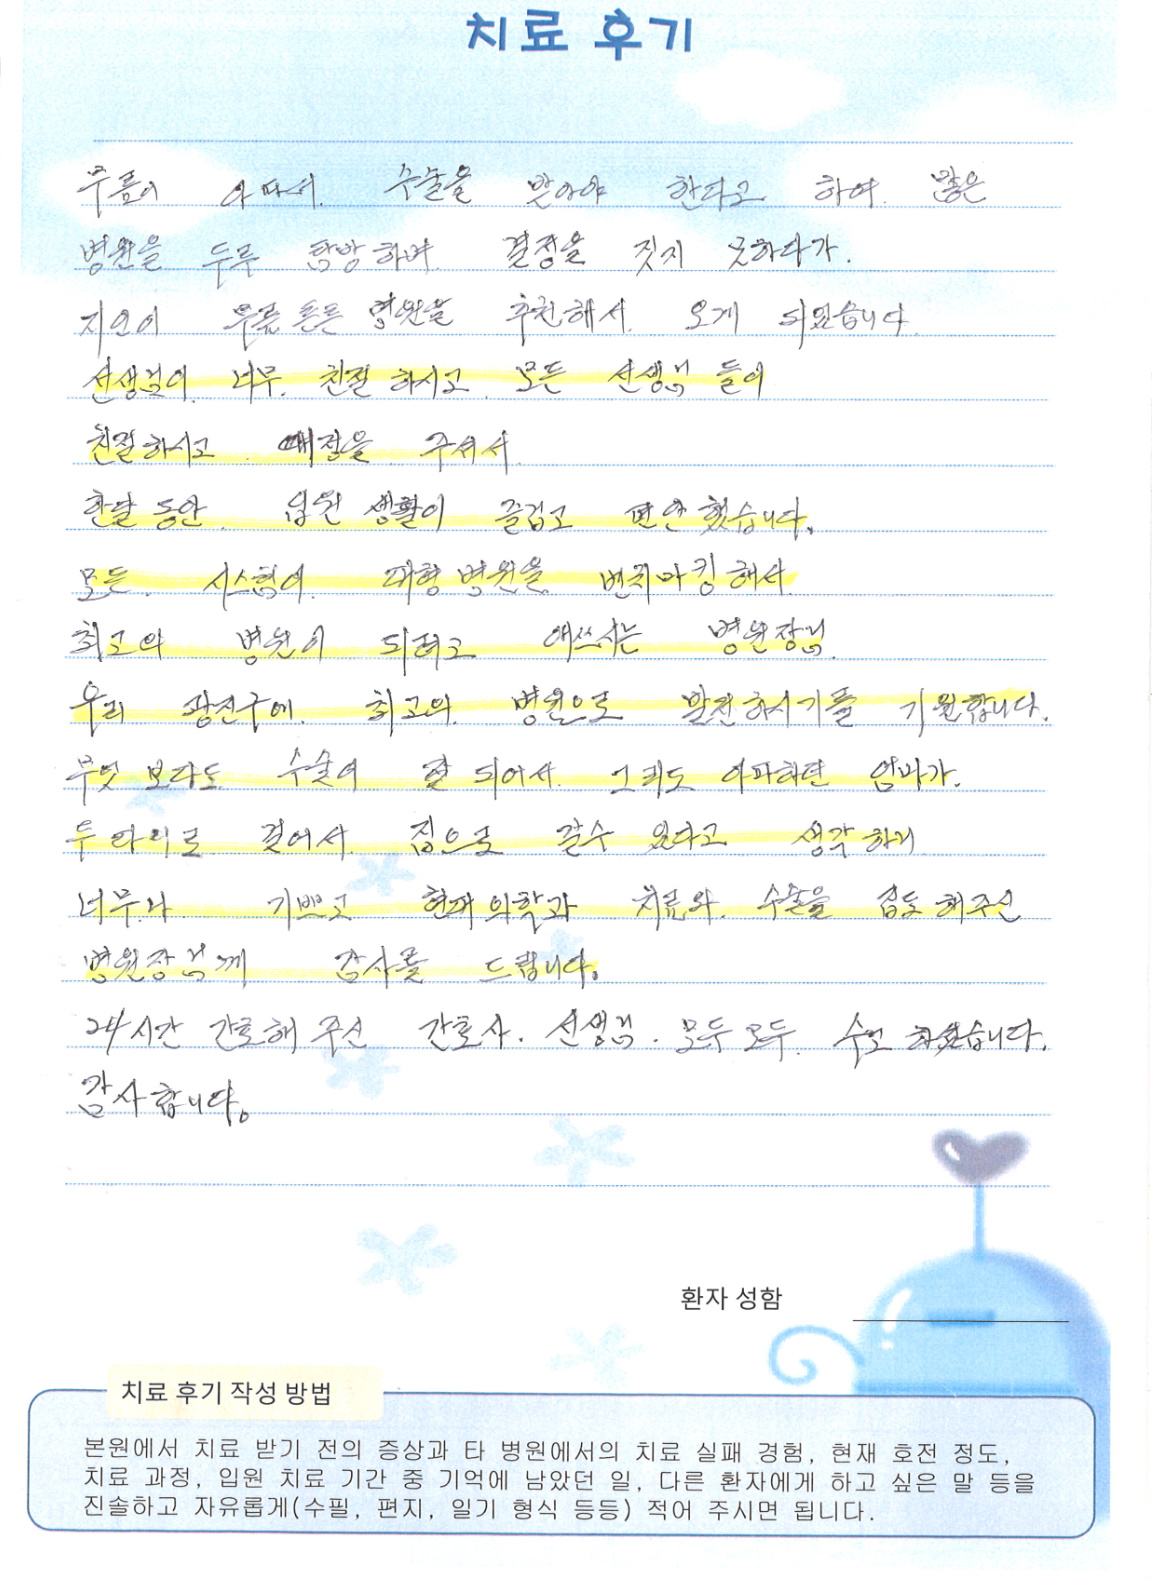 치료 후기
무릎이 아파서. 수술을 받아야 한다고 하여. 많은
병원을 두루 탐방하며 결정을 짓지 못하다가.
지인이 무릎 튼튼 병원을 추천해서 오게 되었습니다
선생님이 너무. 친절 하시고 모든 선생님 들이
친절하시고 애정을 주셔서
한달 동안 입원 생활이 즐겁고 편안 했습니다.
모든. 시스템이 대형 병원을 벤치마킹 해서
최고의 병원이 되려고 애쓰시는 병원장님
우리 광진구에. 최고의. 병원으로 발전하시기를 기원합니다.
무엇 보다도 수술이 잘 되어서 그리도 아파하던 엄마가.
두 다리로 걸어서 집으로 갈수 있다고 생각 하니
너무나 기쁘고 현대 의학과 치료와 수술을 집도 해주신
병원장님께 감사를 드립니다.
24시간 간호해 주신 간호사. 선생님. 모두 모두. 수고 하셨습니다.
감사합니다.
환자 성함
치료 후기 작성 방법
본원에서 치료 받기 전의 증상과 타 병원에서의 치료 실패 경험, 현재 호전 정도,
치료 과정, 입원 치료 기간 중 기억에 남았던 일, 다른 환자에게 하고 싶은 말 등을
진솔하고 자유롭게(수필, 편지, 일기 형식 등등) 적어 주시면 됩니다.